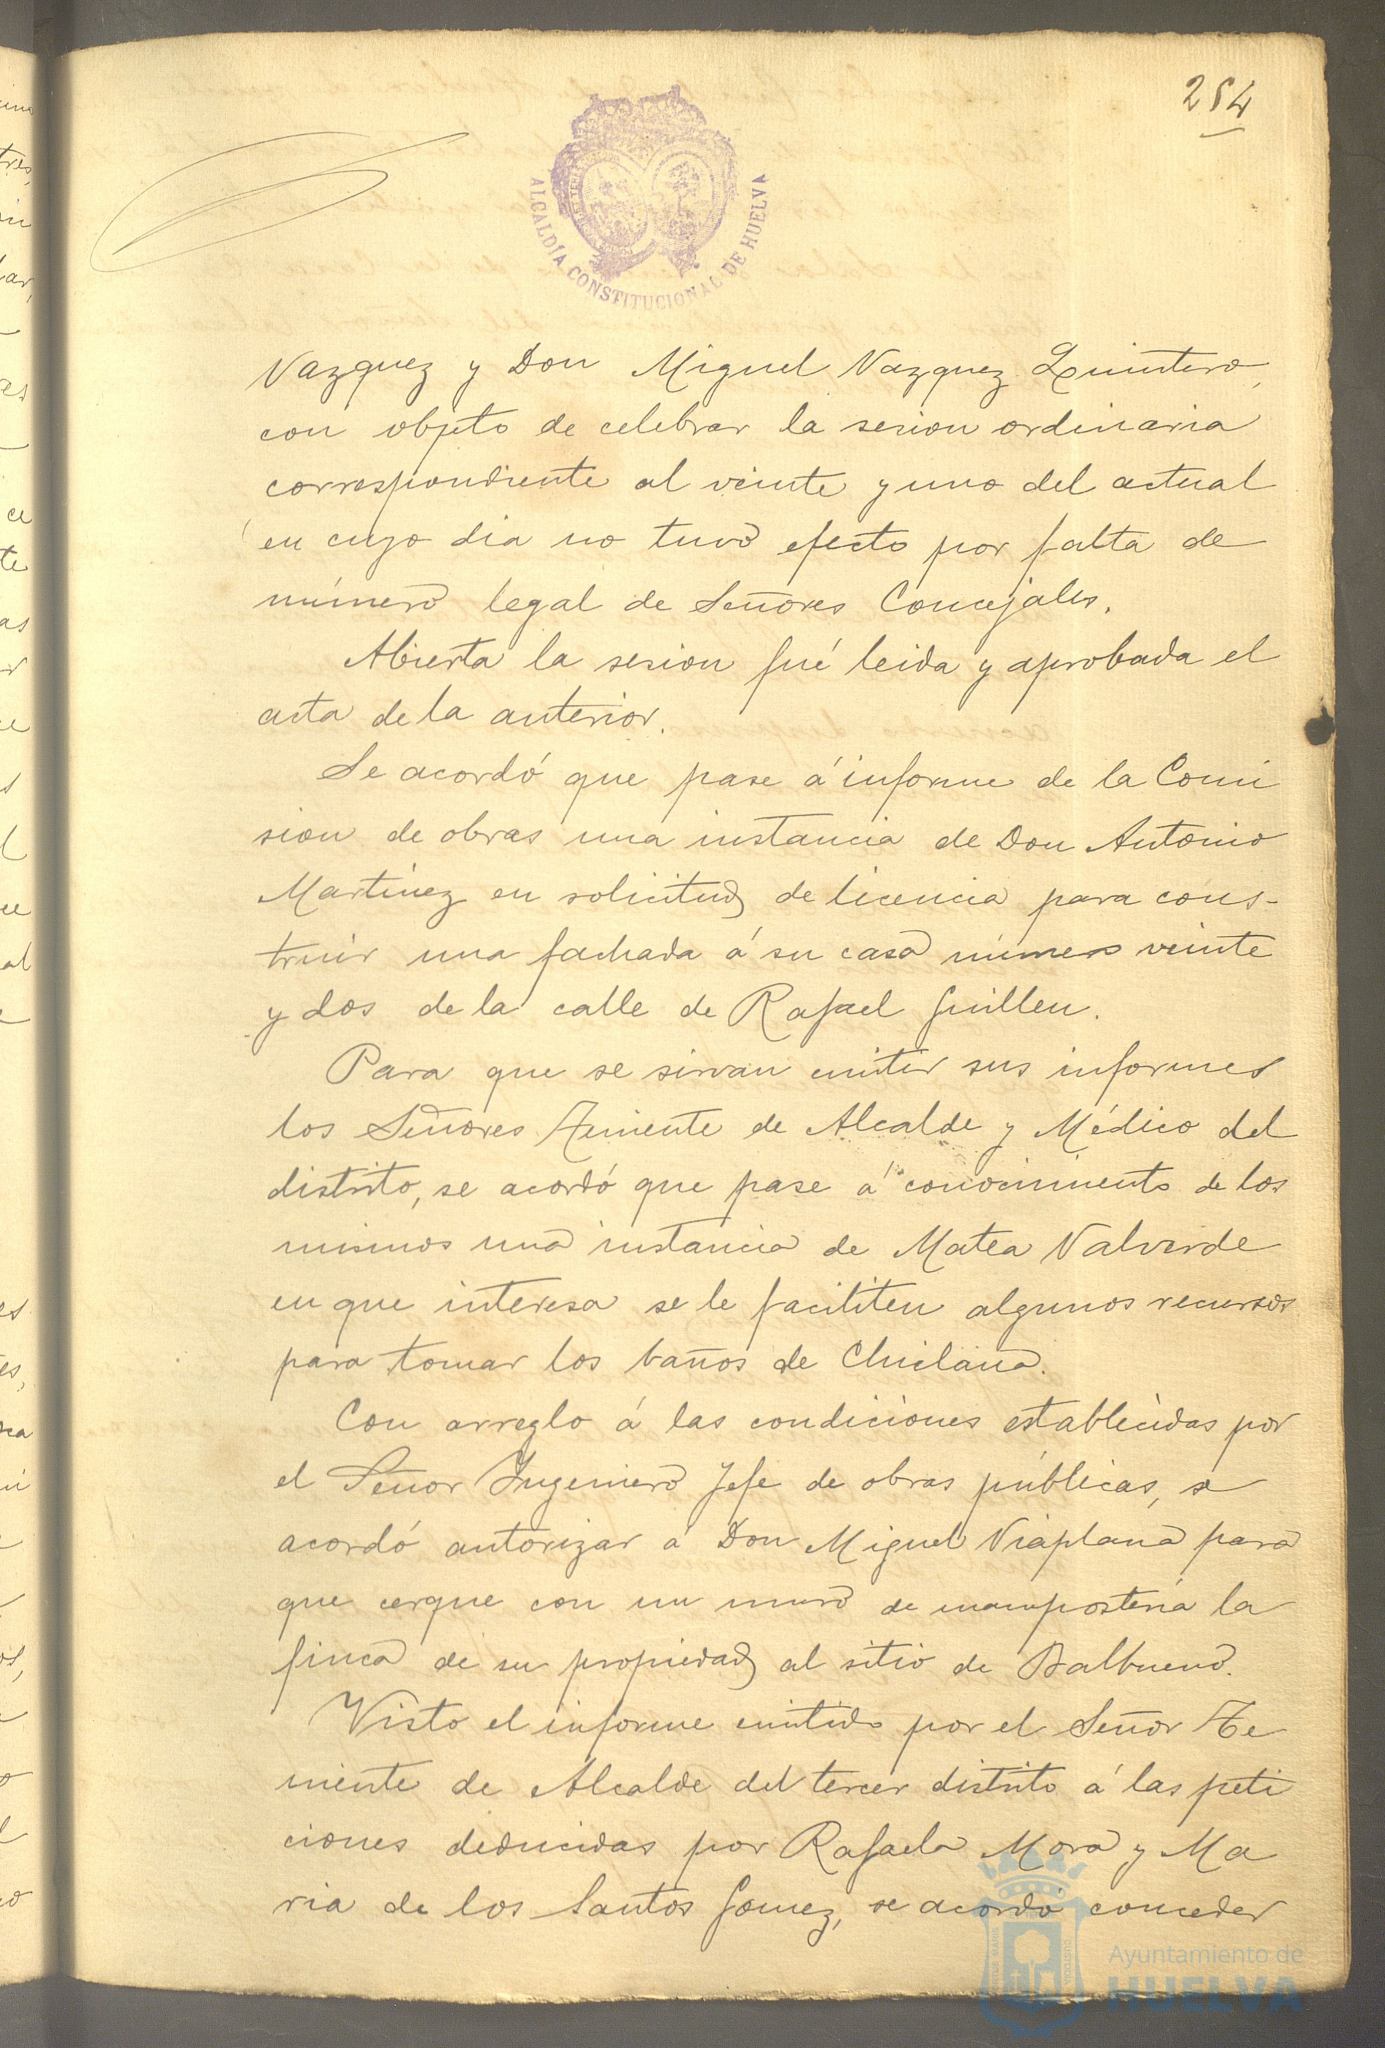 254
ALCALDÍA CONSTITUCIONAL DE HUELVA
Vazquez y Don Miguel Vazquez Quintero,
con objeto de celebrar la sesion ordinaria
correspondiente al veinte y uno del actual
en cuyo dia no tuvo efecto por falta de
número legal de Señores Concejales.
Abierta la sesion fué leida y aprobada el
acta de la anterior.
Se acordó que pase á informe de la Comi
sion de obras una instancia de Don Antonio
Martinez en solicitud de licencia para cons-
truir una fachada á su casa número veinte
y dos de la calle de Rafael Guillen.
Para que se sirvan emitir sus informes
los Señores Teniente de Alcalde y Médico del
distrito, se acordó que pase á conocimiento de los
mismos una instancia de Matea Valverde
en que interesa se le faciliten algunos recursos
para tomar los baños de Chiclana.
Con arreglo á las condiciones establecidas por
el Señor Ingeniero Jefe de obras públicas, se
acordó autorizar á Don Miguel Viaplana para
que cerque con un muro de mamposteria la
finca de su propiedad al sitio de Balbueno.
Visto el informe emitido por el Señor Te
niente de Alcalde del tercer distrito á las peti
ciones deducidas por Rafaela Mora y Ma
ria de los Santos Gomez, se acordó conceder
Ayuntamiento de
HUELVA